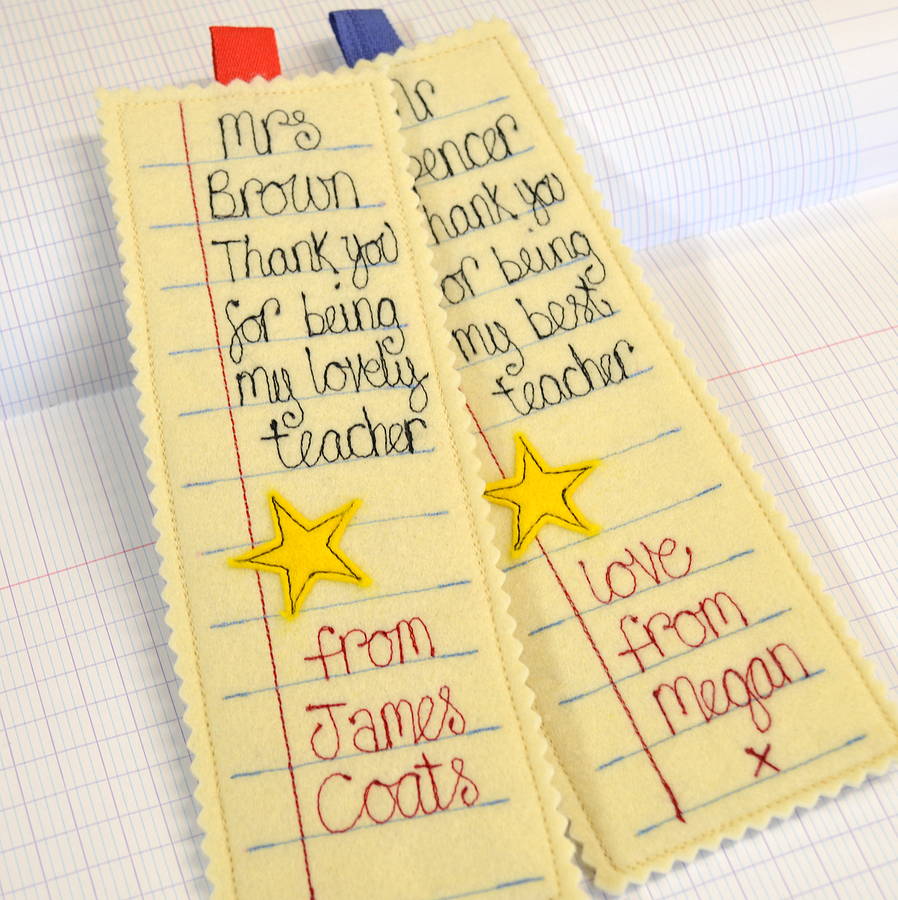 Mrs
Brown
Thank you
for being
my lovely
teacher
from
James
Coats
r
pencer
hank you
or being
my best
teacher
love
from
Megan
x